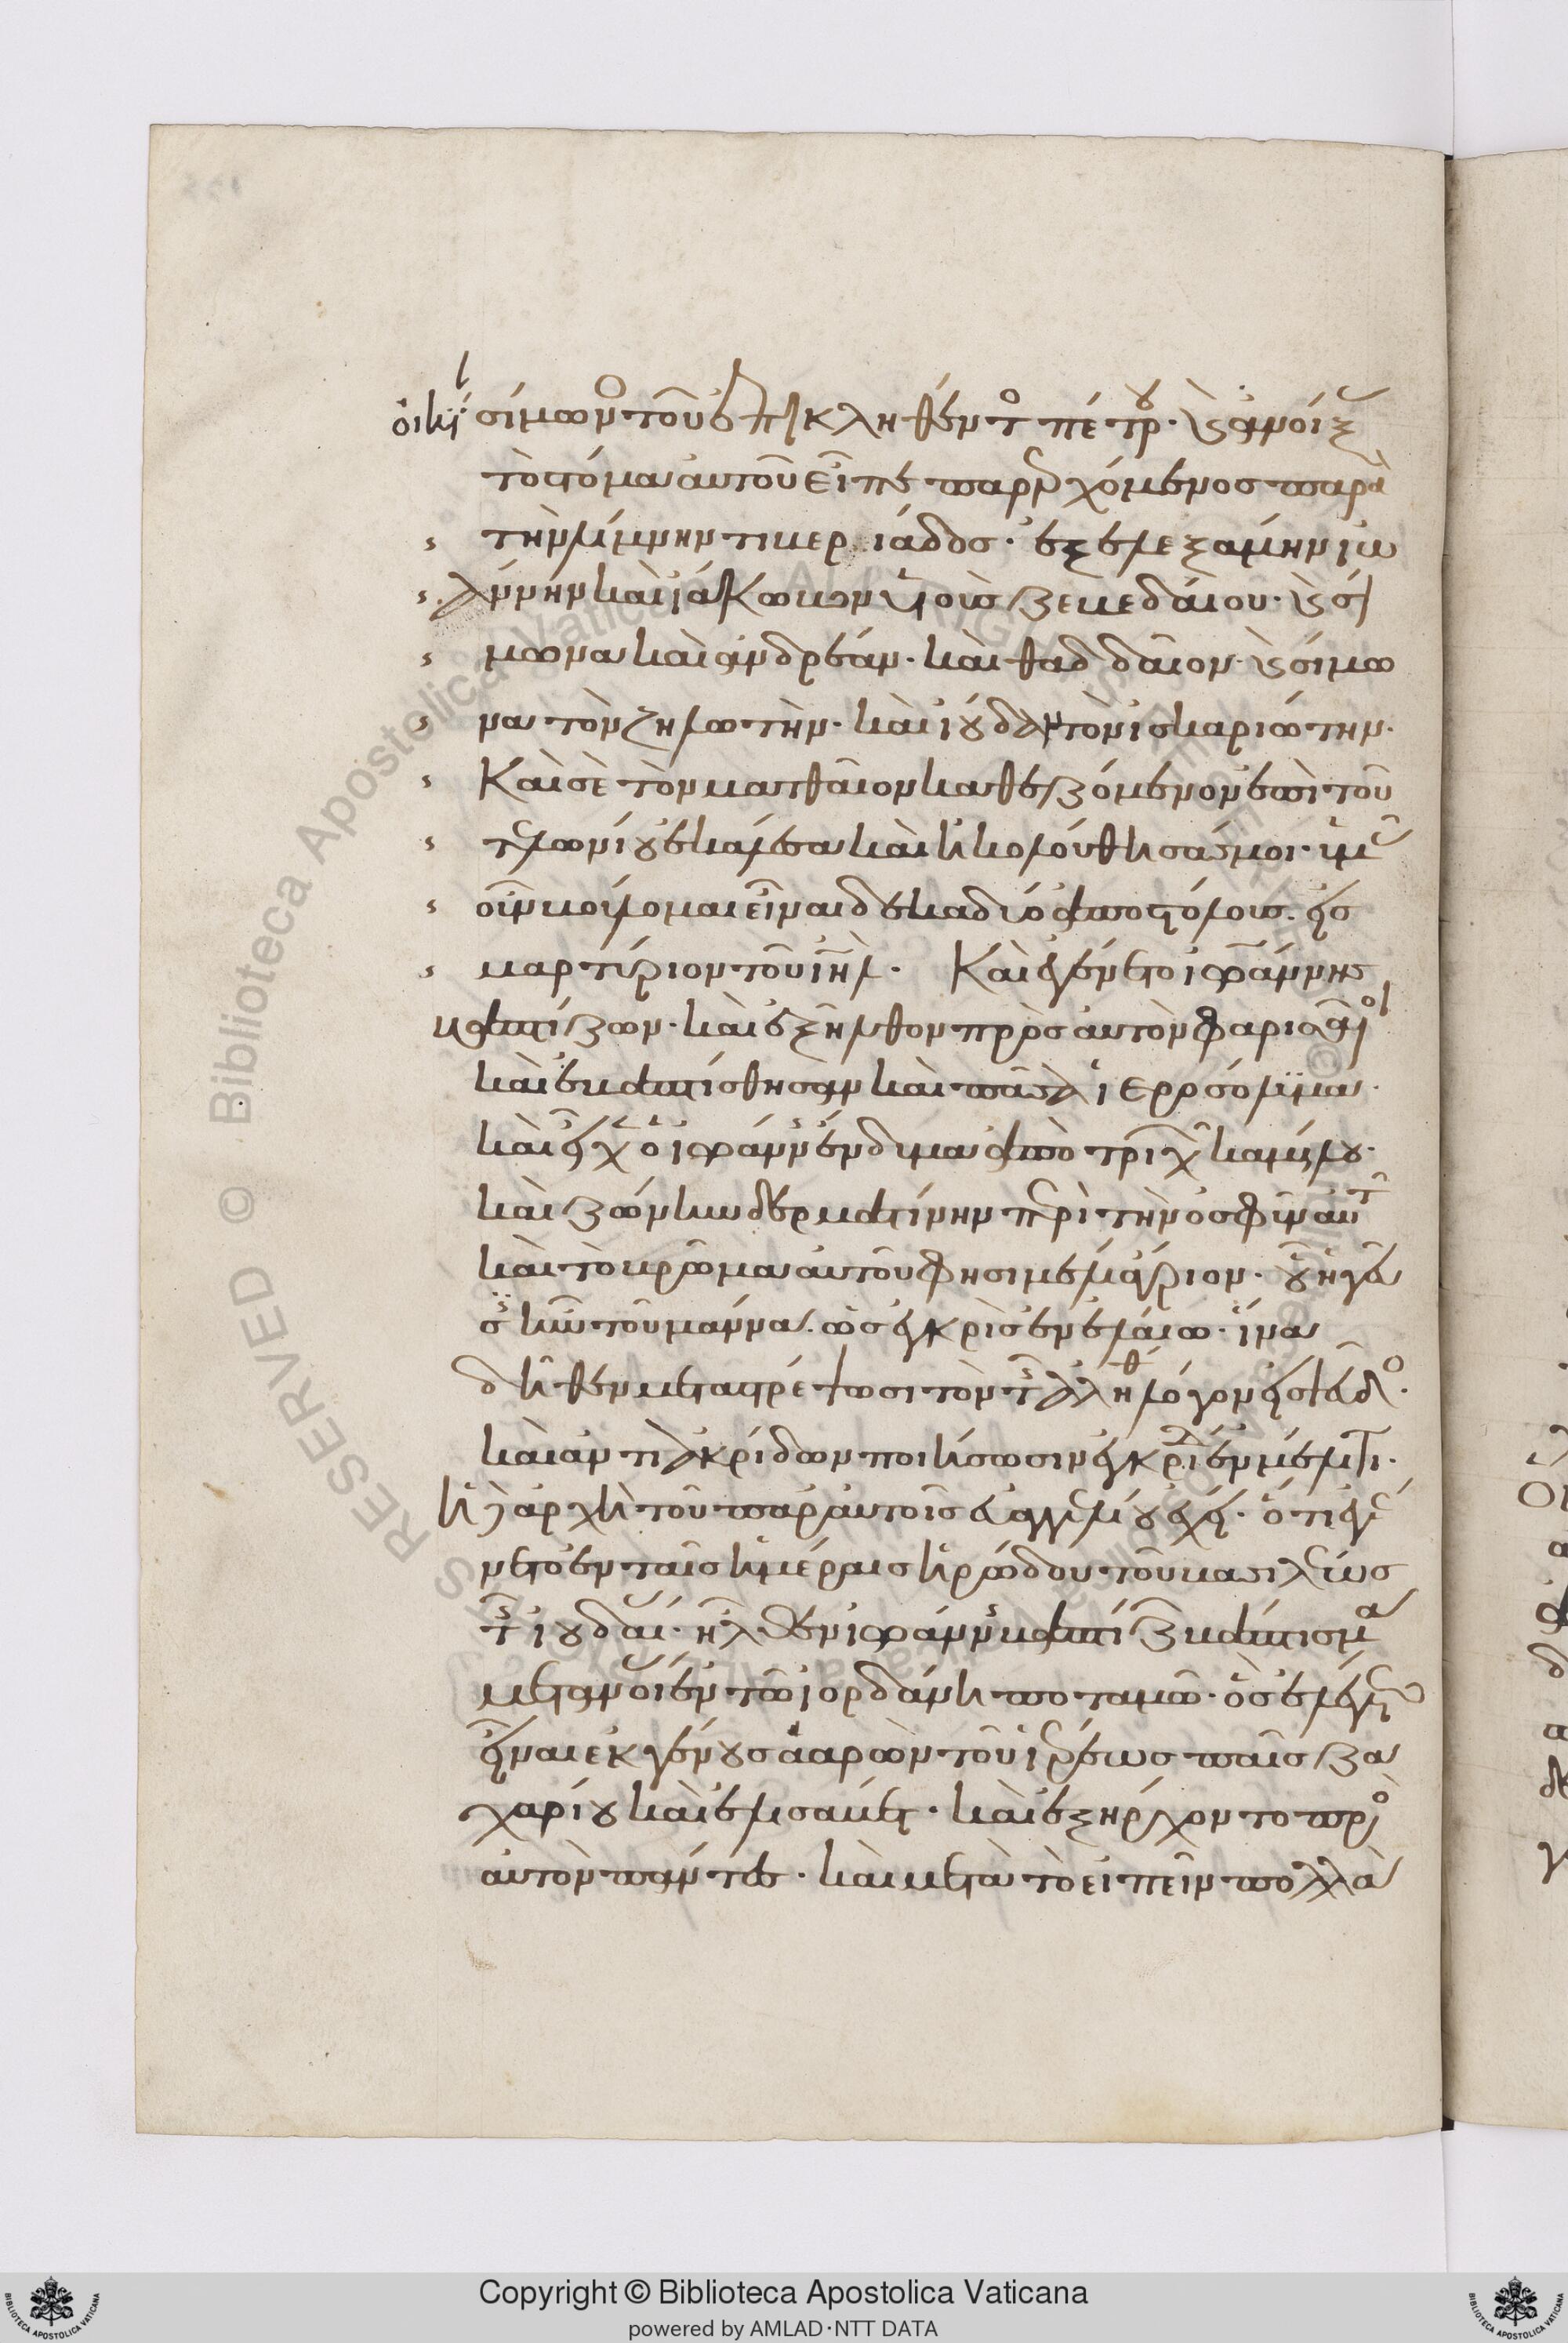 οἰκί σίμωνος τοῦ ἐπικληθέντος πέτρου· καὶ ἀνοίξας
τὸ στόμα αὐτοῦ εἶπε παρερχόμενος παρὰ
τὴν λίμνην τιβεριάδος· ἐξελεξάμην ἰω
άννην καὶ ἰάκωβον υἱοὺς ζεβεδαίου· καὶ σί
μωνα καὶ ἀνδρέαν· καὶ θαδδαῖον· καὶ σίμω
να τὸν ζηλωτὴν· καὶ ἰούδαν τὸν ἰσκαριώτην·
Καὶ σὲ τὸν ματθαῖον καθεζόμενον ἐπὶ τοῦ
τελωνίου ἐκάλεσα καὶ ἠκολούθησάς μοι· ὑμᾶς
οὖν βούλομαι εἶναι δεκαδύο ἀποστόλους· εἰς
μαρτύριον τοῦ ἰηλ· Καὶ ἐγένετο ἰωάννης
βαπτίζων· καὶ ἐξῆλθον πρὸς αὐτὸν φαρισαῖοι
καὶ ἐβαπτίσθησαν καὶ πᾶσα ἱεροσόλυμα·
καὶ εἶχεν ὁ ἰωάννης ἔνδυμα ἀπὸ τριχῶν καμήλου·
καὶ ζώνην δερματίνην περὶ τὴν ὀσφὺν αὐτοῦ
καὶ τὸ βρῶμα αὐτοῦ φησι μέλι ἄγριον· οὗ ἡ γεῦ
σις ἦν τοῦ μάννα· ὡς ἐγκρὶς ἐν ἐλαίω· ἵνα
δῆθεν μεταστρέψωσι τὸν τῆς ἀληθείας λόγον εἰς ψεῦδος·
καὶ ἀντὶ ἀκρίδων ποιήσωσιν ἐγκρίδα ἐν μέλιτι·
ἡ δὲ ἀρχὴ τοῦ παρ' αὐτοῖς εὐαγγελίου ἔχει· ὅτι ἐγέ
νετο ἐν ταῖς ἡμέραις ἡρώδου τοῦ βασιλέως
τῆς ἰουδαίας· ἦλθεν ἰωάννης βαπτίζων βάπτισμα
μετανοίας ἐν τῶ ἰορδάνη ποταμῶ· ὃς ἐλέγετο
εἶναι ἐκ γένους ἀαρὼν τοῦ ἱερέως παῖς ζα
χαρίου καὶ ἐλισάβετ· καὶ ἐξήρχοντο πρὸς
αὐτὸν πάντες· καὶ μετὰ τὸ εἰπεῖν πολλὰ
Copyright © Biblioteca Apostolica Vaticana
powered by AMLAD·NTT DATA